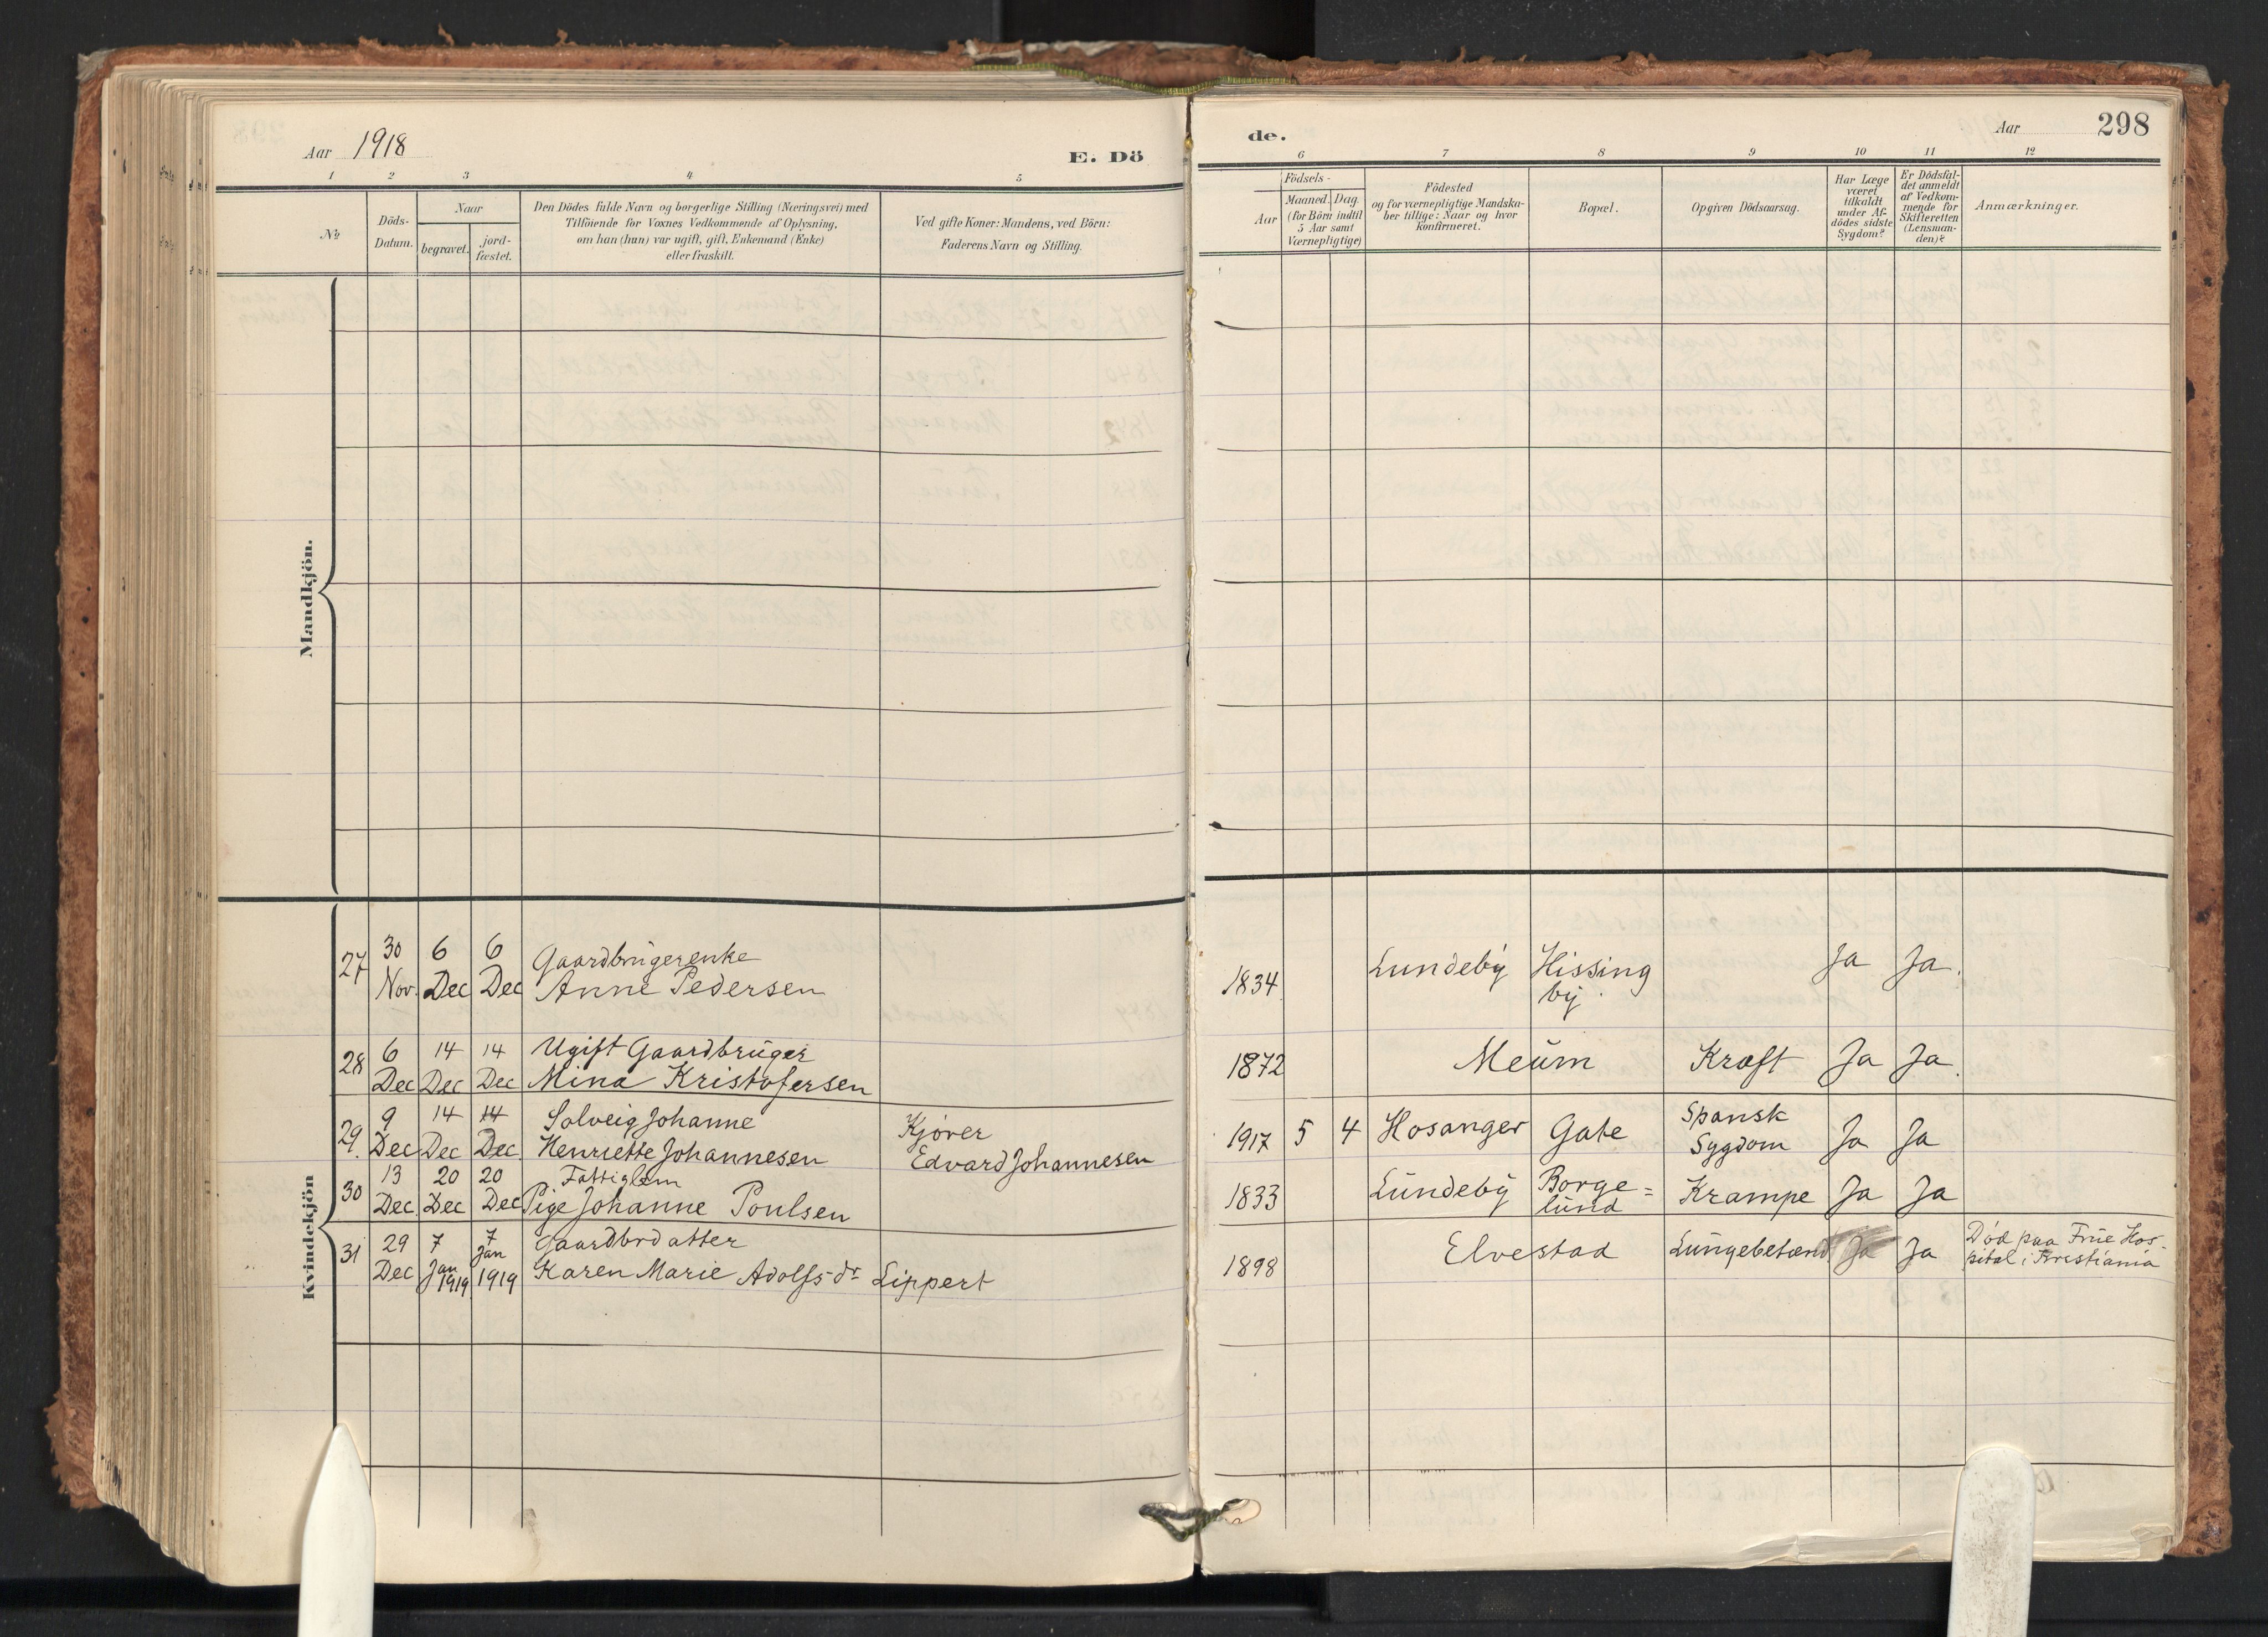 Aar 1918
E. Dö
1 2 3 4 5
№
Döds-
Datum.
Naar
begravet.
jord-
fæstet.
Den Dödes fulde Navn og borgerlige Stilling (Næringsvei) med
Tilföiende for Voxnes Vedkommende af Oplysning,
om han (hun) var ugift, gift, Enkemand (Enke)
eller fraskilt.
Ved gifte Koner: Mandens, ved Börn:
Faderens Navn og Stilling.
Mandkjön.
Kvindekjön
27 30 6 6 Gaardbrugerenke
Nov. Dec Dec Anne Pedersen
28 6 14 14 Ugift Gaardbruger
Dec Dec Dec Mina Kristofersen
29. 9 14 14 Solveig Johanne Kjører
Dec Dec Dec. Henriette Johannesen Edvard Johannesen
30 13 20 20 Fattiglem
Dec. Dec Dec Pige Johanne Poulsen
31 29 7 7 Gaardbrdatter
Dec Jan 1919 Jan 1919 Karen Marie Adolfsdr Lippert
de.
Aar 298
6 7 8 9 10 11 12
Födsels-
Aar
Maaned. Dag.
(for Börn indtil
5 Aar samt
Værnepligtige)
Födested
og for værnepligtige Mandska-
ber tillige: Naar og hvor
konfirmeret.
Bopæl.
Opgiven Dödsaarsag.
Har Læge
været
tilkaldt
under Af-
dödes sidste
Sygdom?
Er Dödsfal-
det anmeldt
af Vedkom-
mende for
Skifteretten
(Lensman-
den)?
Anmærkninger.
1834 Lundeby Hissing
by Ja Ja.
1872 Meum Kræft Ja Ja.
1917 5 4 Hosanger Gate Spansk
Sygdom Ja Ja
1833 Lundeby Borge=
lund Krampe Ja Ja
1898 Elvestad Lungebetænd Ja Ja Död paa Frue Hos-
pital i Kristiania